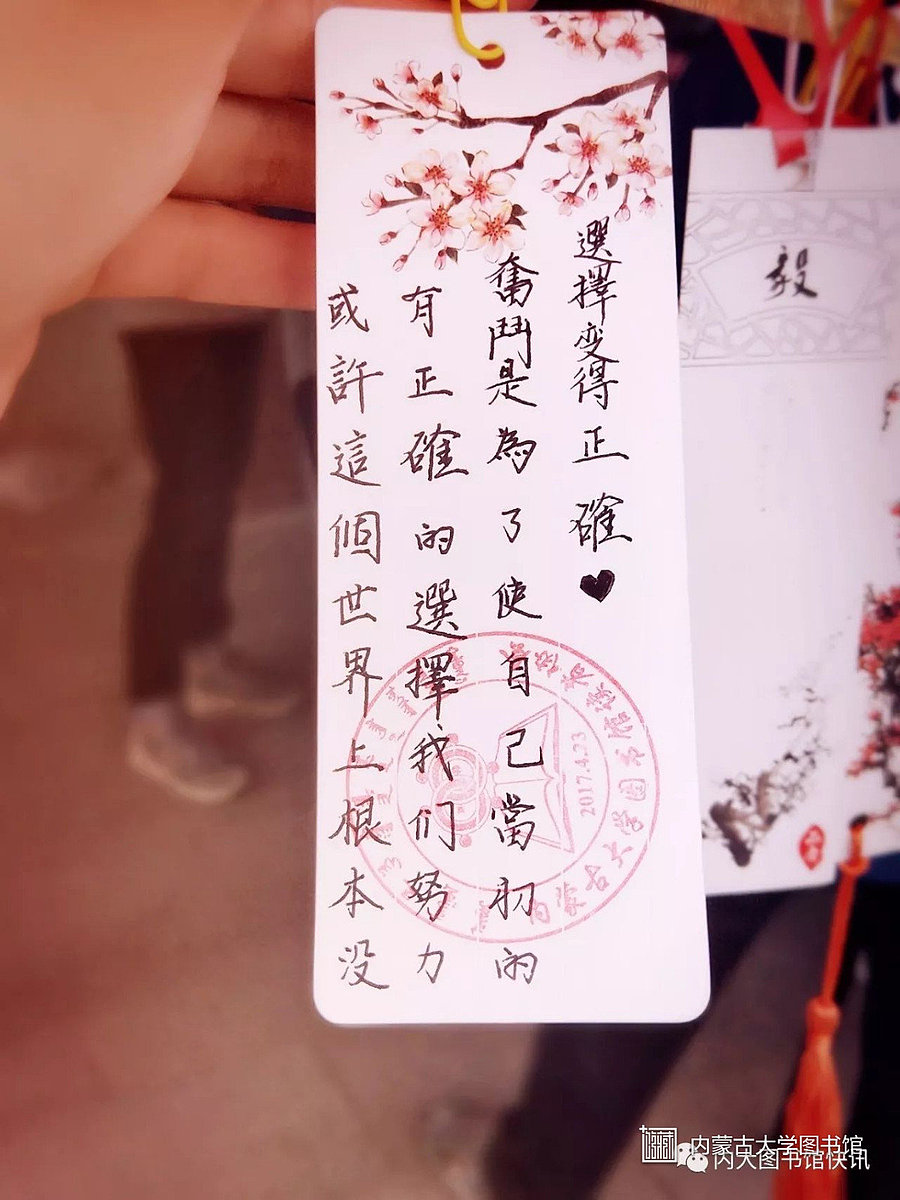 或許這個世界上根本没
有正確的選擇我们努力
奮鬥是為了使自己當初的
選擇变得正確♥
内蒙古大学图书馆读者
2017.4.23
毅
内蒙古大学图书馆
内大图书馆快讯